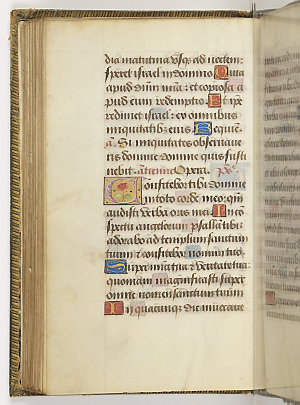 dia matutina vsq; ad noctem:
speret israel in domino. Quia
apud dnm mia: et copiosa a
pud eum redemptio. Et ipe
redimet israel: ex omnibus
iniquitatibus eius. Requiē
Si iniquitates obseruaue
ris domine domine quis susti
nebit. Opera. ps
Confitebor tibi domine
in toto corde meo: qm
audisti verba oris mei. In co
spectu angelorum psallā tibi:
adorabo ad templum sanctum
tuum et confitebor nomini tuo.
Super mia tua et veritate tua:
quoniam magnificasti super
omne nomen sanctum tuum.
In quacumq; die inuocaue